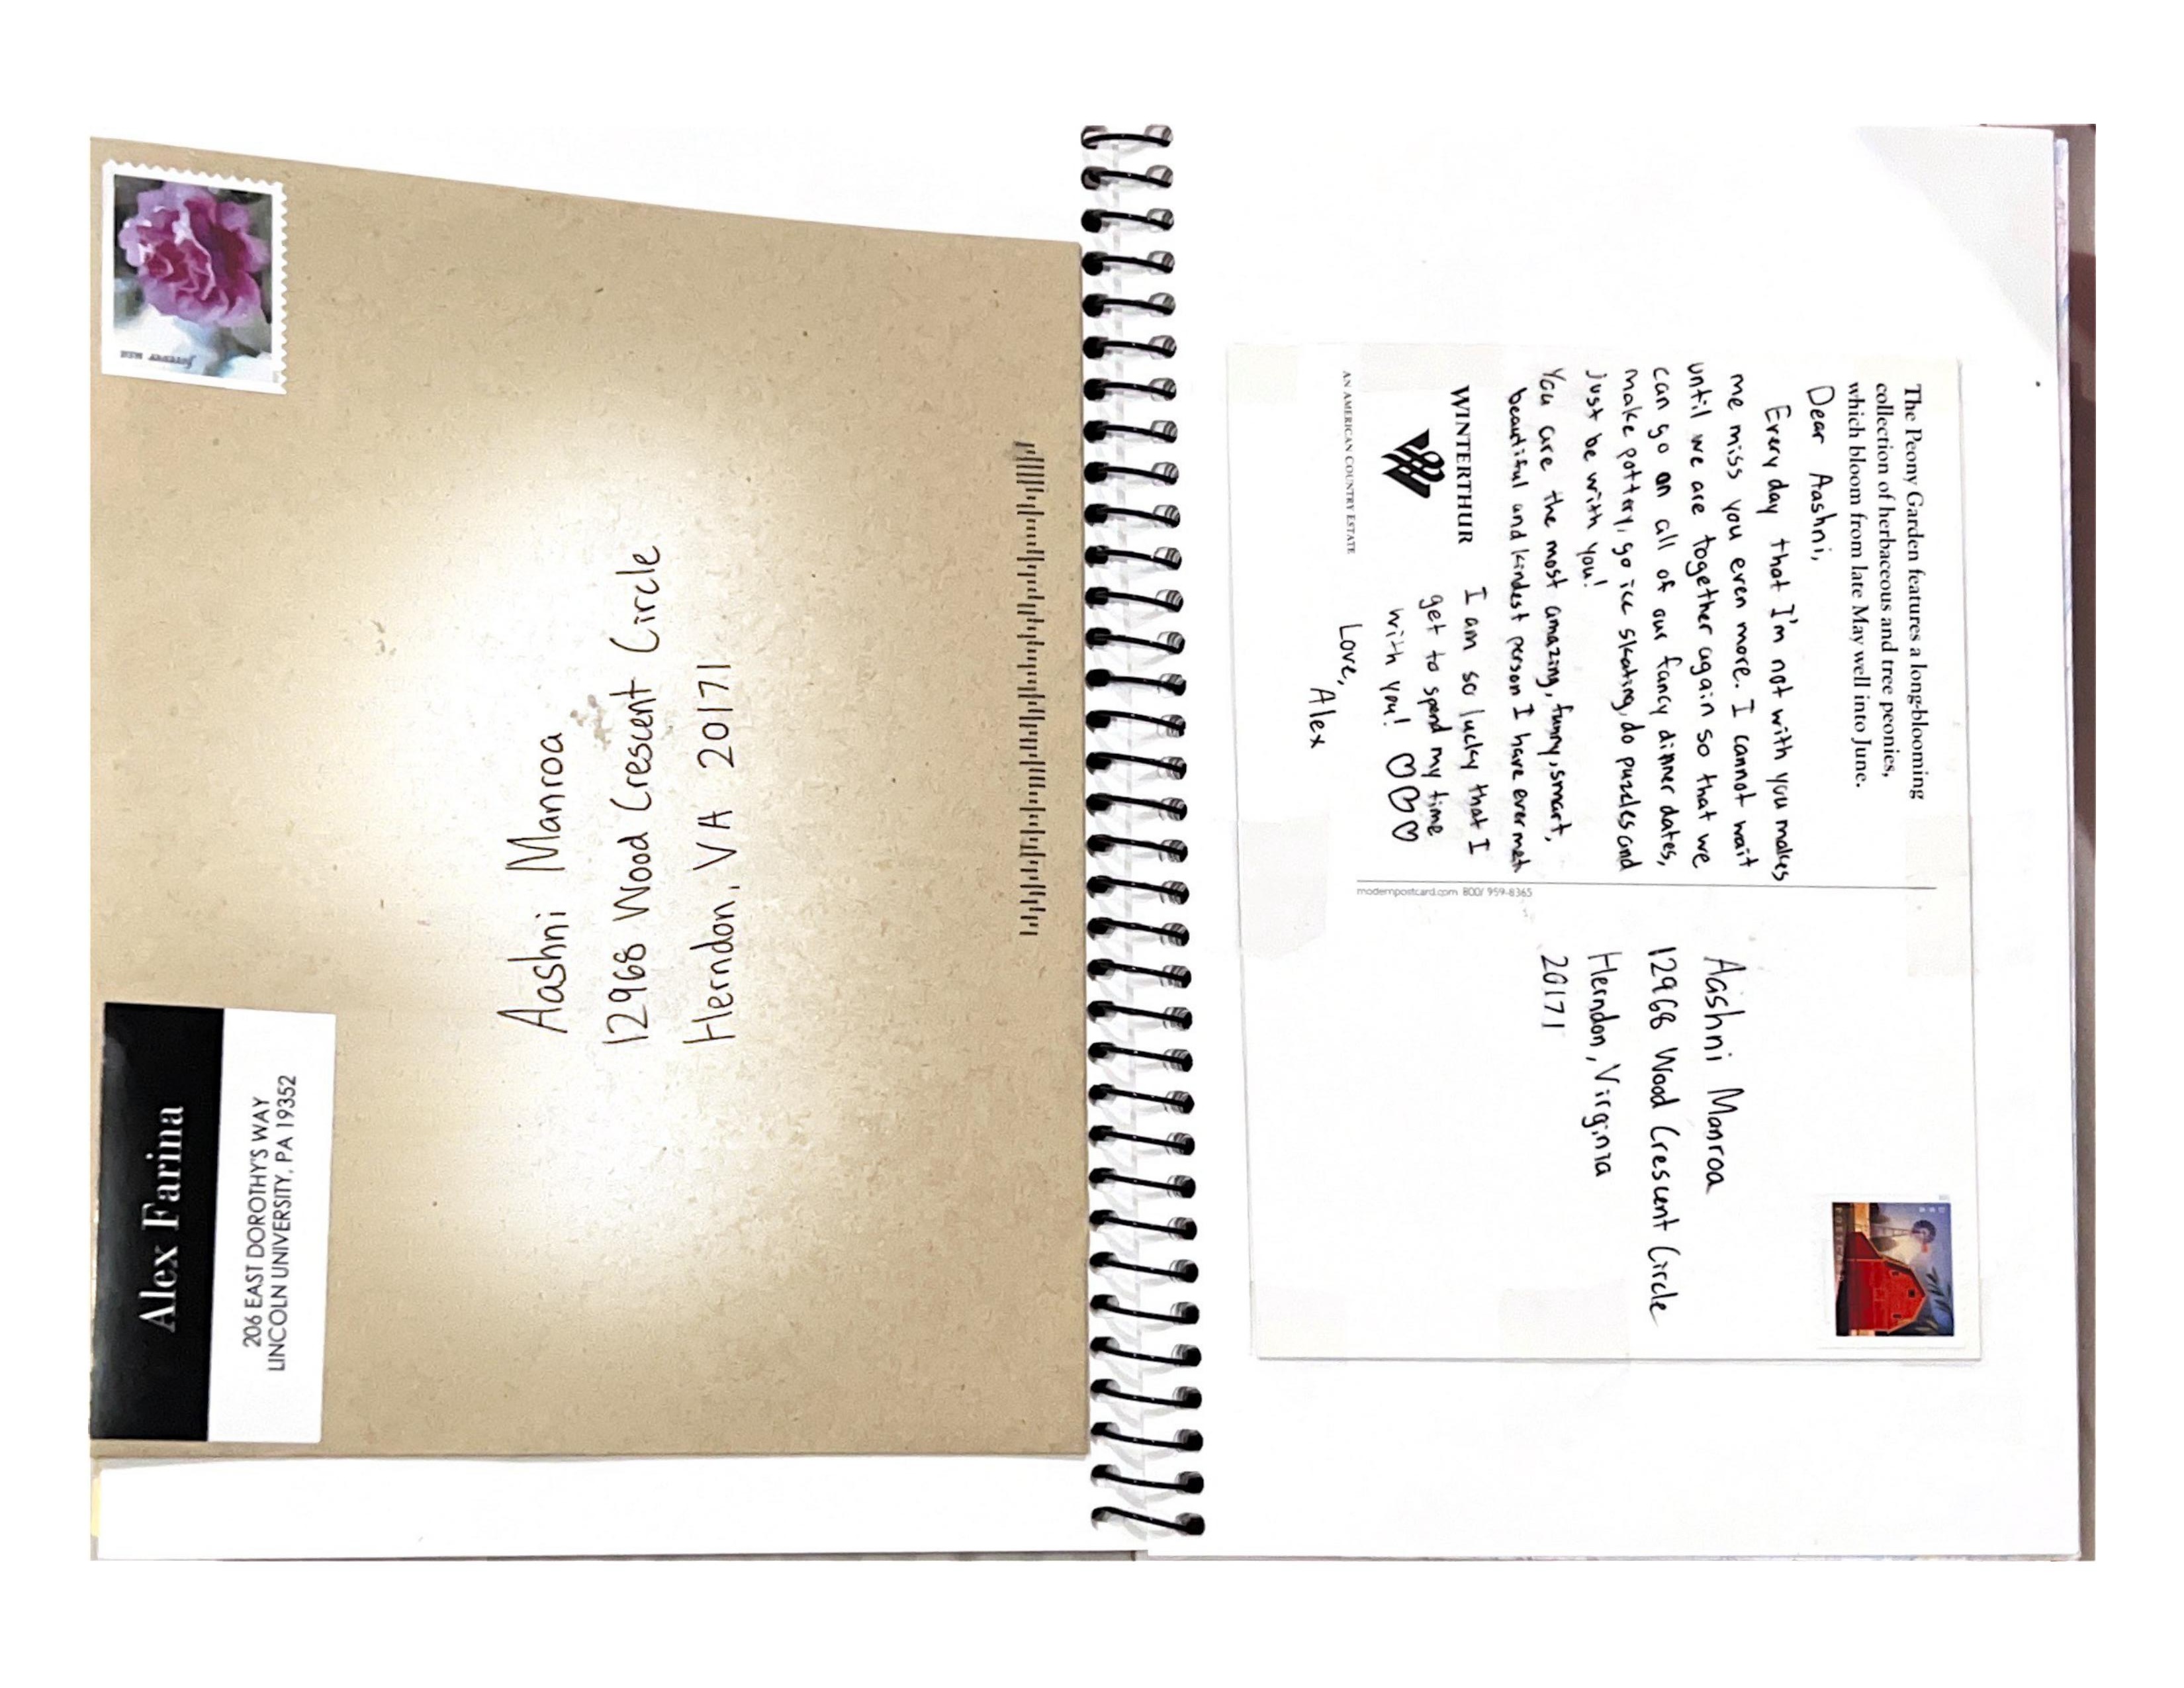 Alex Farina
206 EAST DOROTHY'S WAY
LINCOLN UNIVERSITY, PA 19352
forever USA
Aashni Manroa
12968 Wood Crescent Circle
Herndon, VA 20171
The Peony Garden features a long-blooming
collection of herbaceous and tree peonies,
which bloom from late May well into June.
Dear Aashni,
Every day that I'm not with you makes
me miss you even more. I cannot wait
until we are together again so that we
can go on all of our fancy dinner dates,
make pottery, go ice skating, do puzzles and
just be with you!
You are the most amazing, funny, smart,
beautiful and kindest person I have ever met
I am so lucky that I
get to spend my time
with you!
Love,
Alex
WINTERTHUR
AN AMERICAN COUNTRY ESTATE
modernpostcard.com 800/ 959-8365
Aashni Manroa
12968 Wood Crescent Circle
Herndon, Virginia
20171